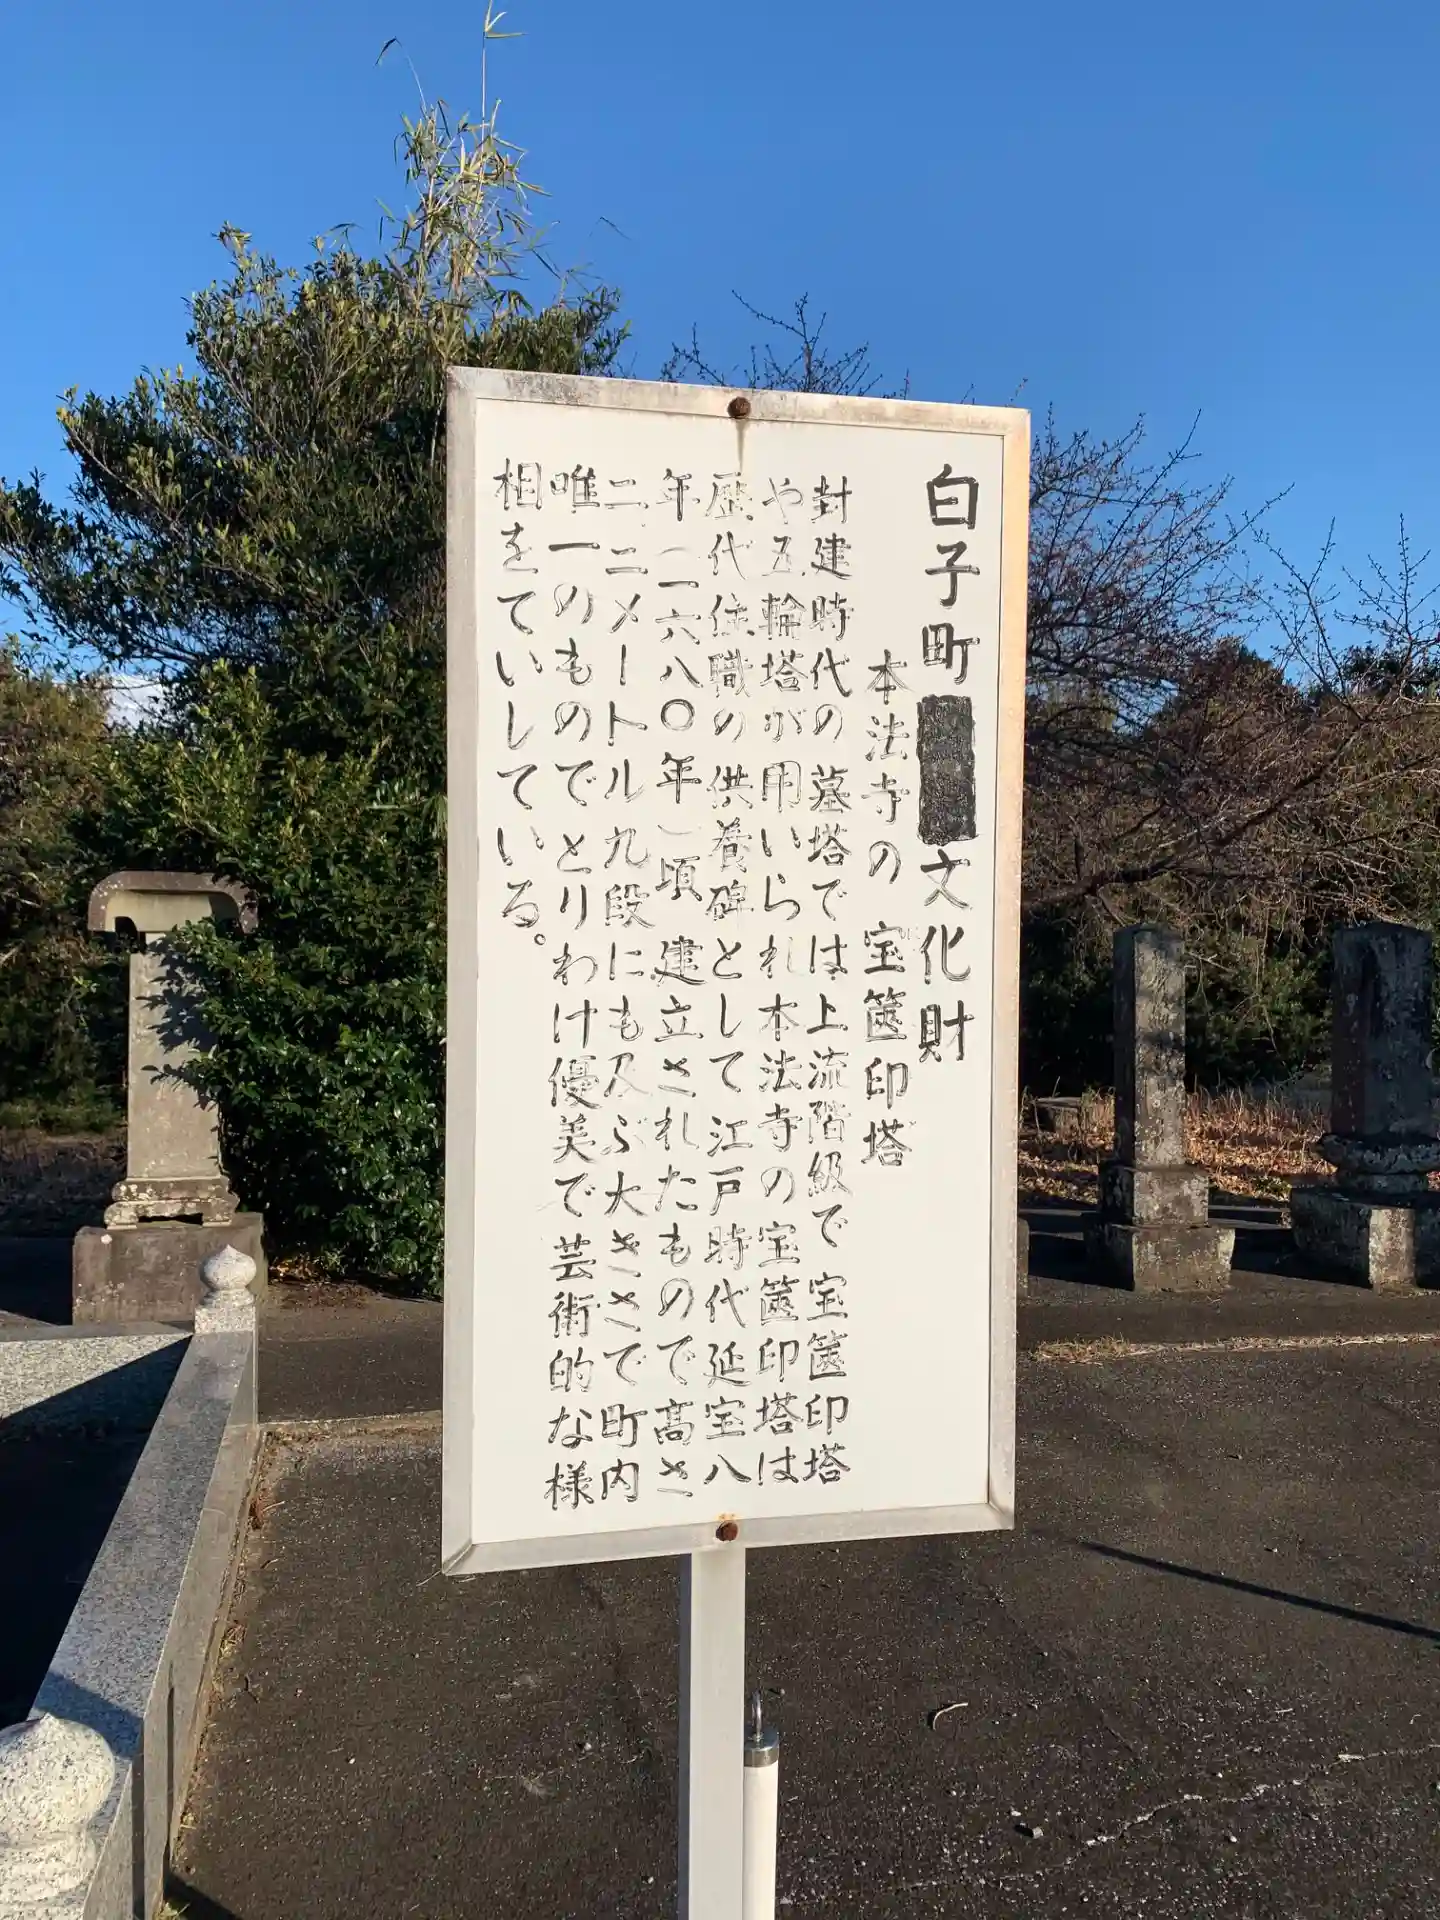 白子町文化財
本法寺の 宝篋印塔
封建時代の墓塔では上流階級で 宝篋印塔
や五輪塔が用いられ本法寺の宝篋印塔は
歴代住職の供養碑として江戸時代延宝八
年(一六八〇年)頃 建立されたもので高さ
二二メートル九段にも及ぶ大きさで町内
唯一のものでとりわけ優美で芸術的な様
相をていしている。